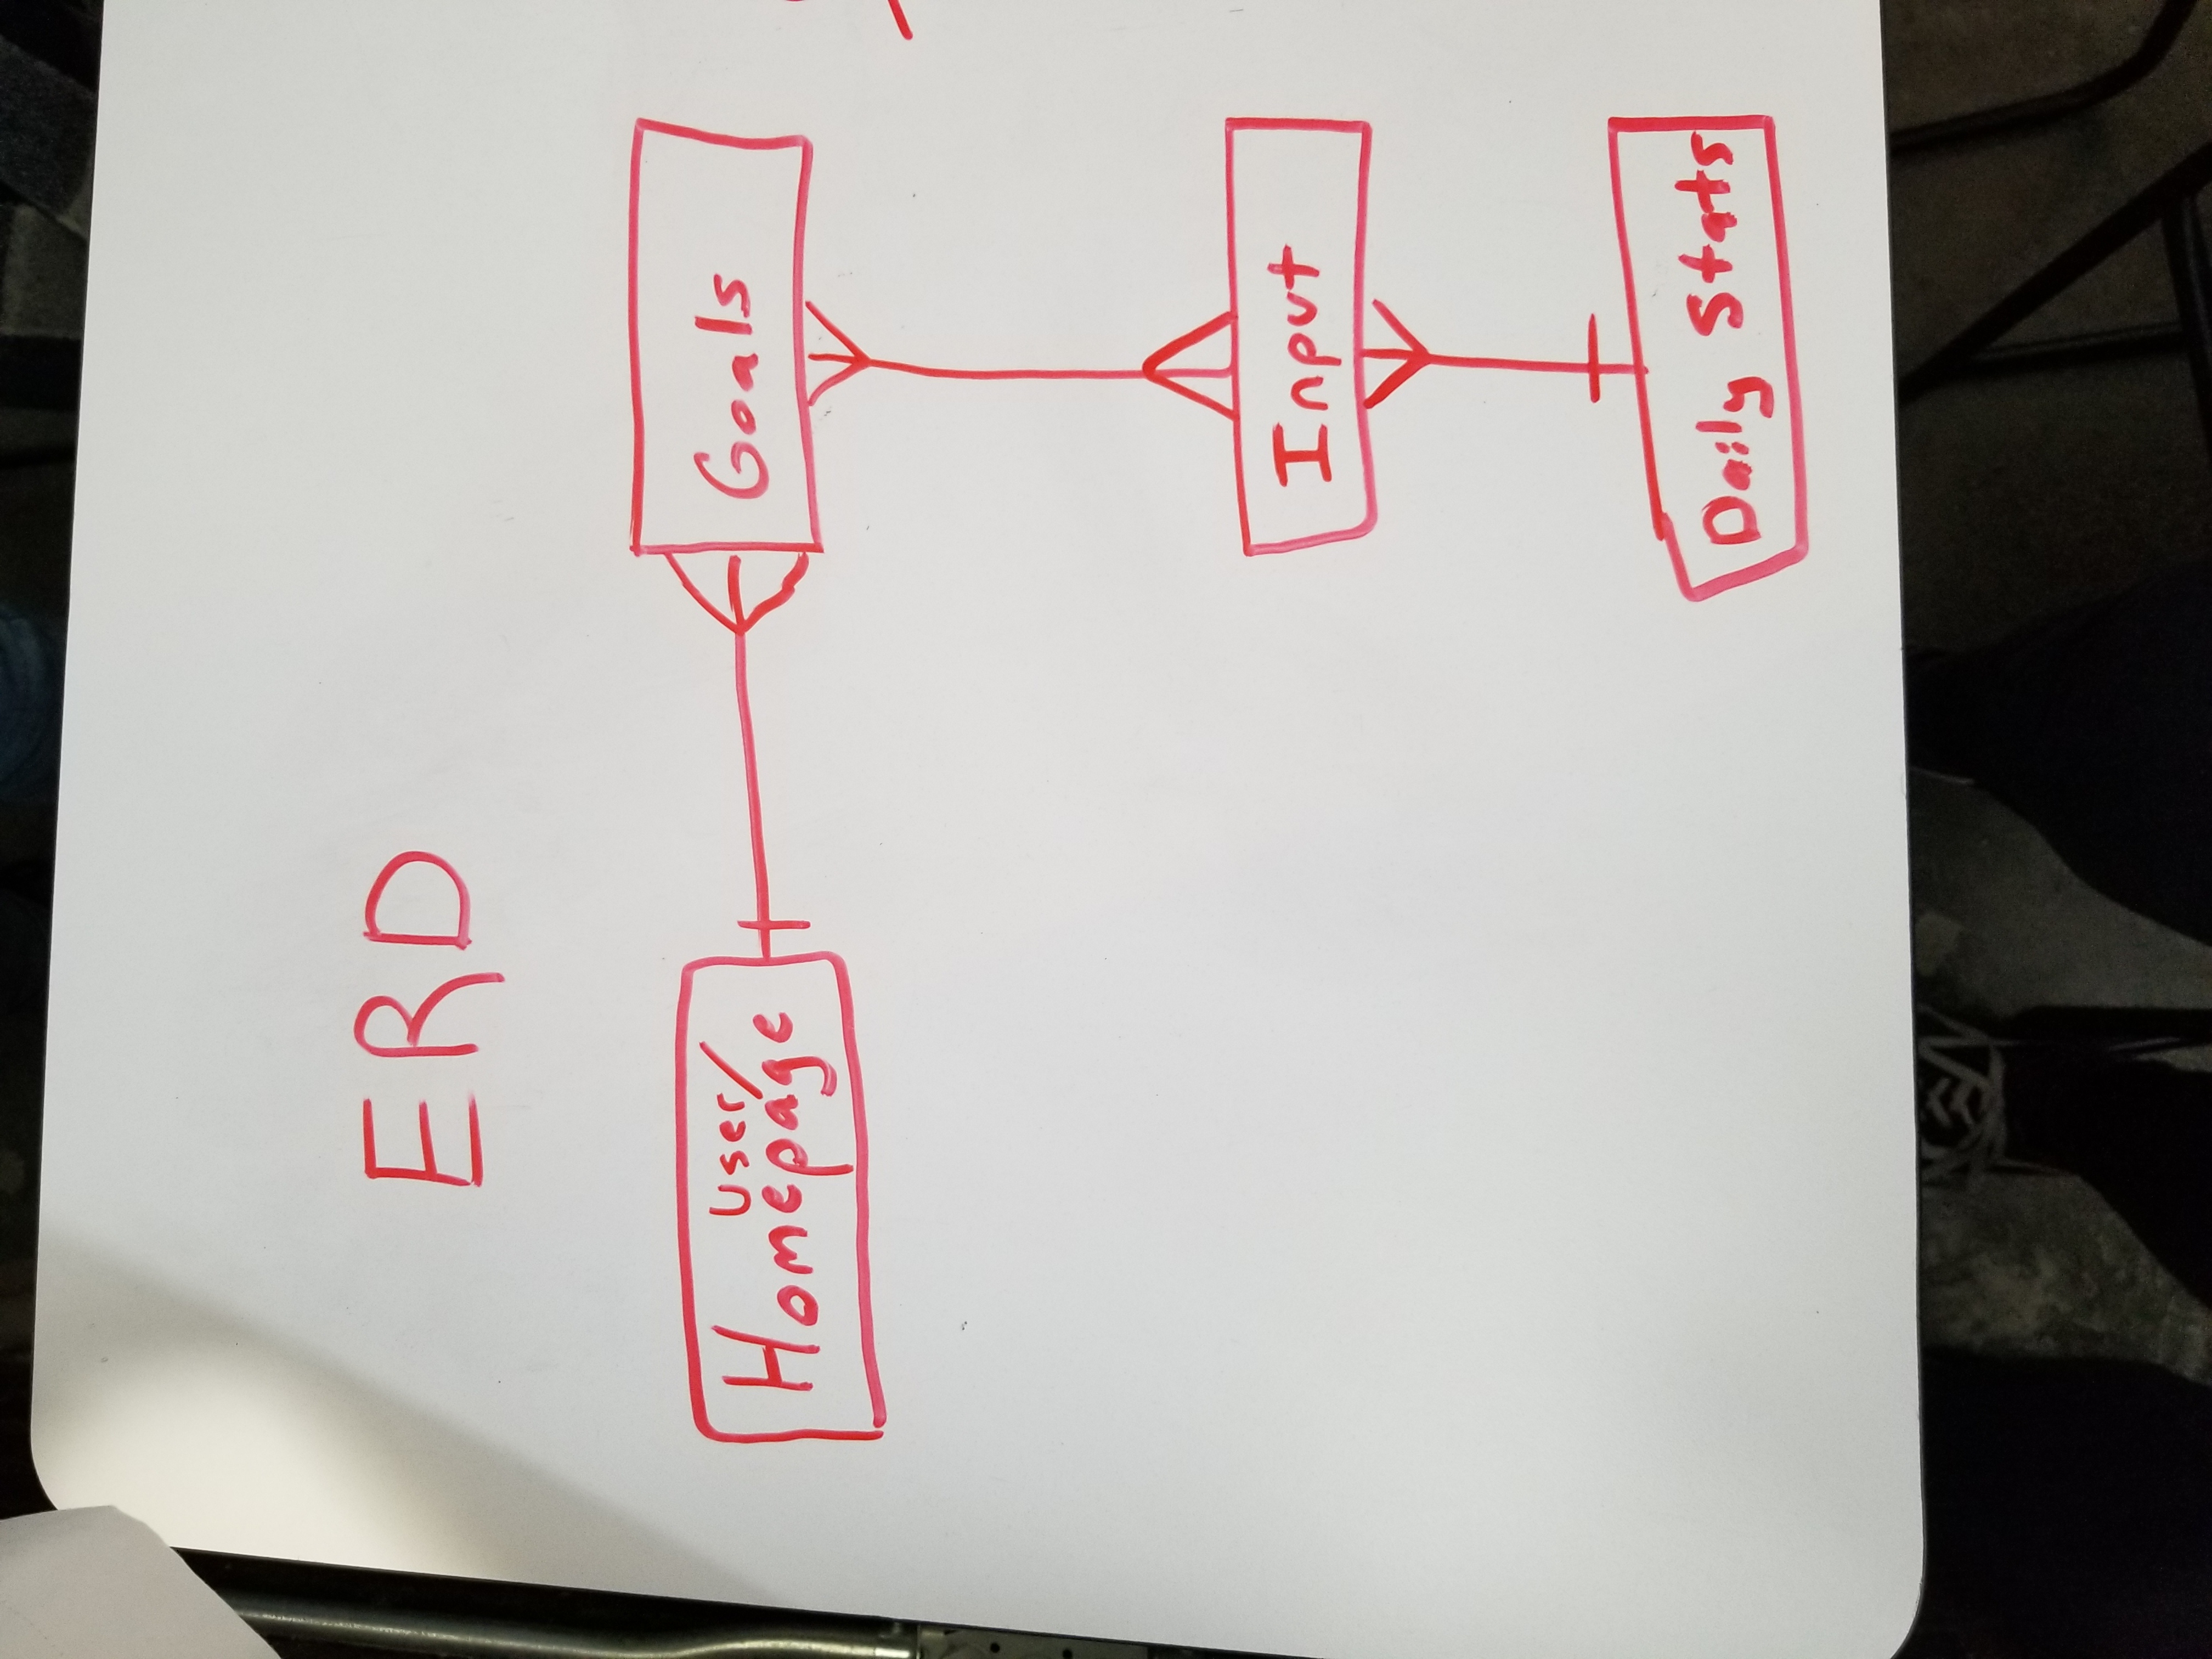 ERD
User/
Homepage
Goals
Input
Daily Stats